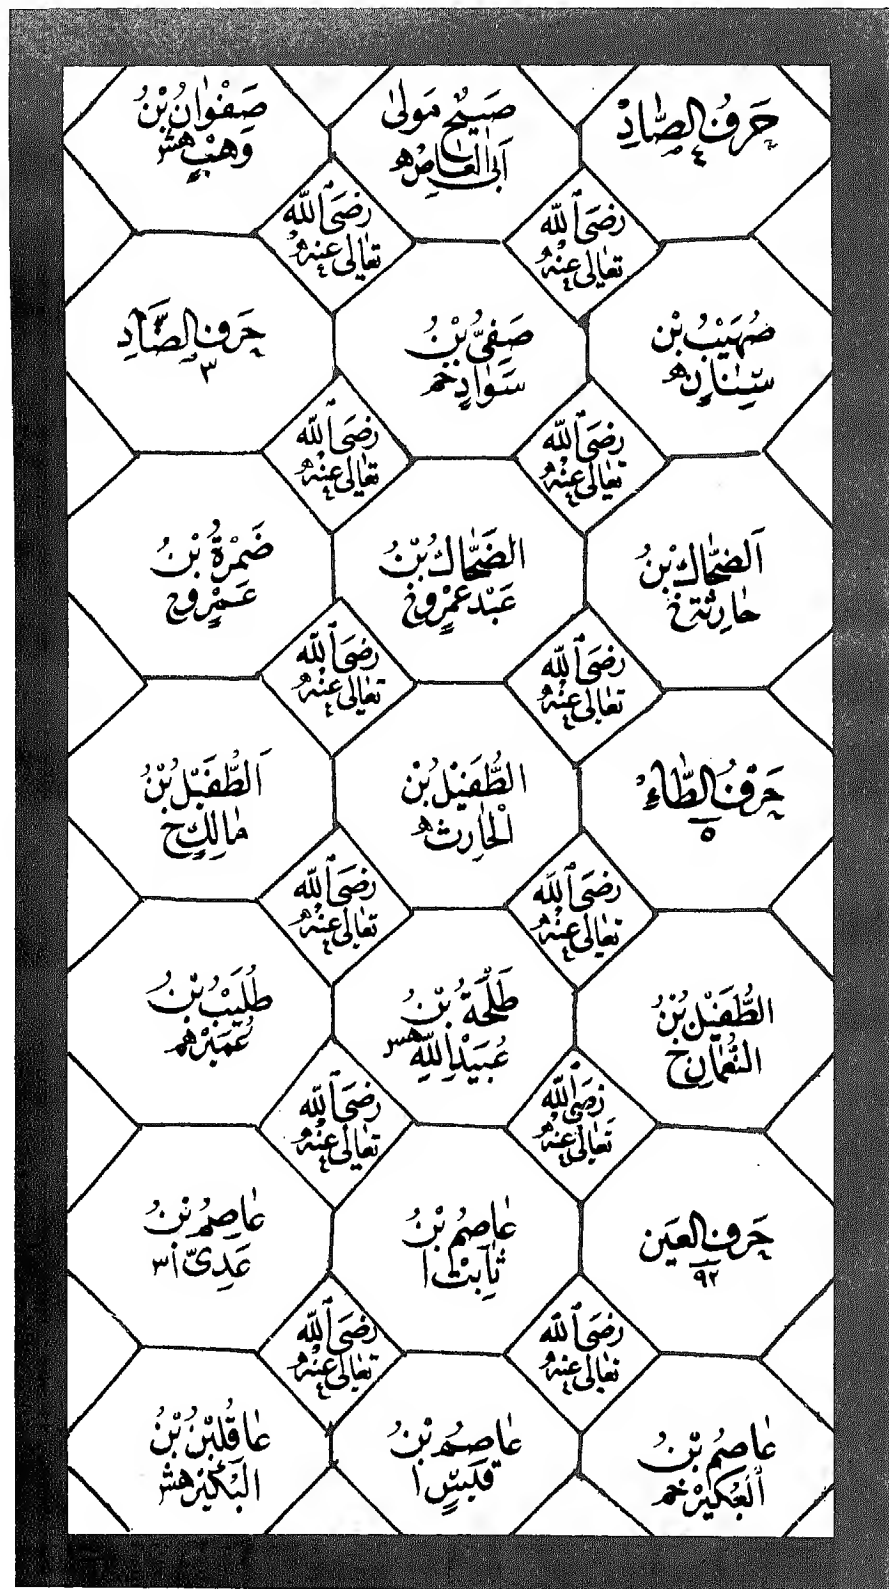 حَرْفُ الصَّادِ
٤
صَبِيْحُ مَوْلٰى
أَبِى الْعَاصِ ه
صَفْوَانُ بْنُ
وَهْبٍ هش
رَضِىَ ٱللّٰه
تَعَالٰى عَنْهُ
رَضِىَ ٱللّٰه
تَعَالٰى عَنْهُ
صُهَيْبُ بْنُ
سِنَانٍ ه
صَفِىُّ بْنُ
سَوَادٍ خم
حَرْفُ الضَّادِ
٣
رَضِىَ ٱللّٰه
تَعَالٰى عَنْهُ
رَضِىَ ٱللّٰه
تَعَالٰى عَنْهُ
اَلضَّحَّاكُ بْنُ
حَارِثَةَ خ
الضَّحَّاكُ بْنُ
عَبْدِ عَمْرٍو خ
ضَمْرَةُ بْنُ
عَمْرٍو خ
رَضِىَ ٱللّٰه
تَعَالٰى عَنْهُ
رَضِىَ ٱللّٰه
تَعَالٰى عَنْهُ
حَرْفُ الطَّاءِ
٥
الطُّفَيْلُ بْنُ
الْحَارِثِ ه
اَلطُّفَيْلُ بْنُ
مَالِكٍ خ
رَضِىَ ٱللّٰه
تَعَالٰى عَنْهُ
رَضِىَ ٱللّٰه
تَعَالٰى عَنْهُ
الطُّفَيْلُ بْنُ
النُّعْمَانِ خ
طَلْحَةُ بْنُ
عُبَيْدِ اللّٰهِ هس
طُلَيْبُ بْنُ
عُمَيْرٍ هم
رَضِىَ ٱللّٰه
تَعَالٰى عَنْهُ
رَضِىَ ٱللّٰه
تَعَالٰى عَنْهُ
حَرْفُ الْعَيْن
٩٢
عَاصِمُ بْنُ
ثَابِتٍ ا
عَاصِمُ بْنُ
عَدِىٍّ ا٣
رَضِىَ ٱللّٰه
تَعَالٰى عَنْهُ
رَضِىَ ٱللّٰه
تَعَالٰى عَنْهُ
عَاصِمُ بْنُ
الْعُكَيْرِ خم
عَاصِمُ بْنُ
قَيْسٍ ا
عَاقِلُ بْنُ
الْبُكَيْرِ هش